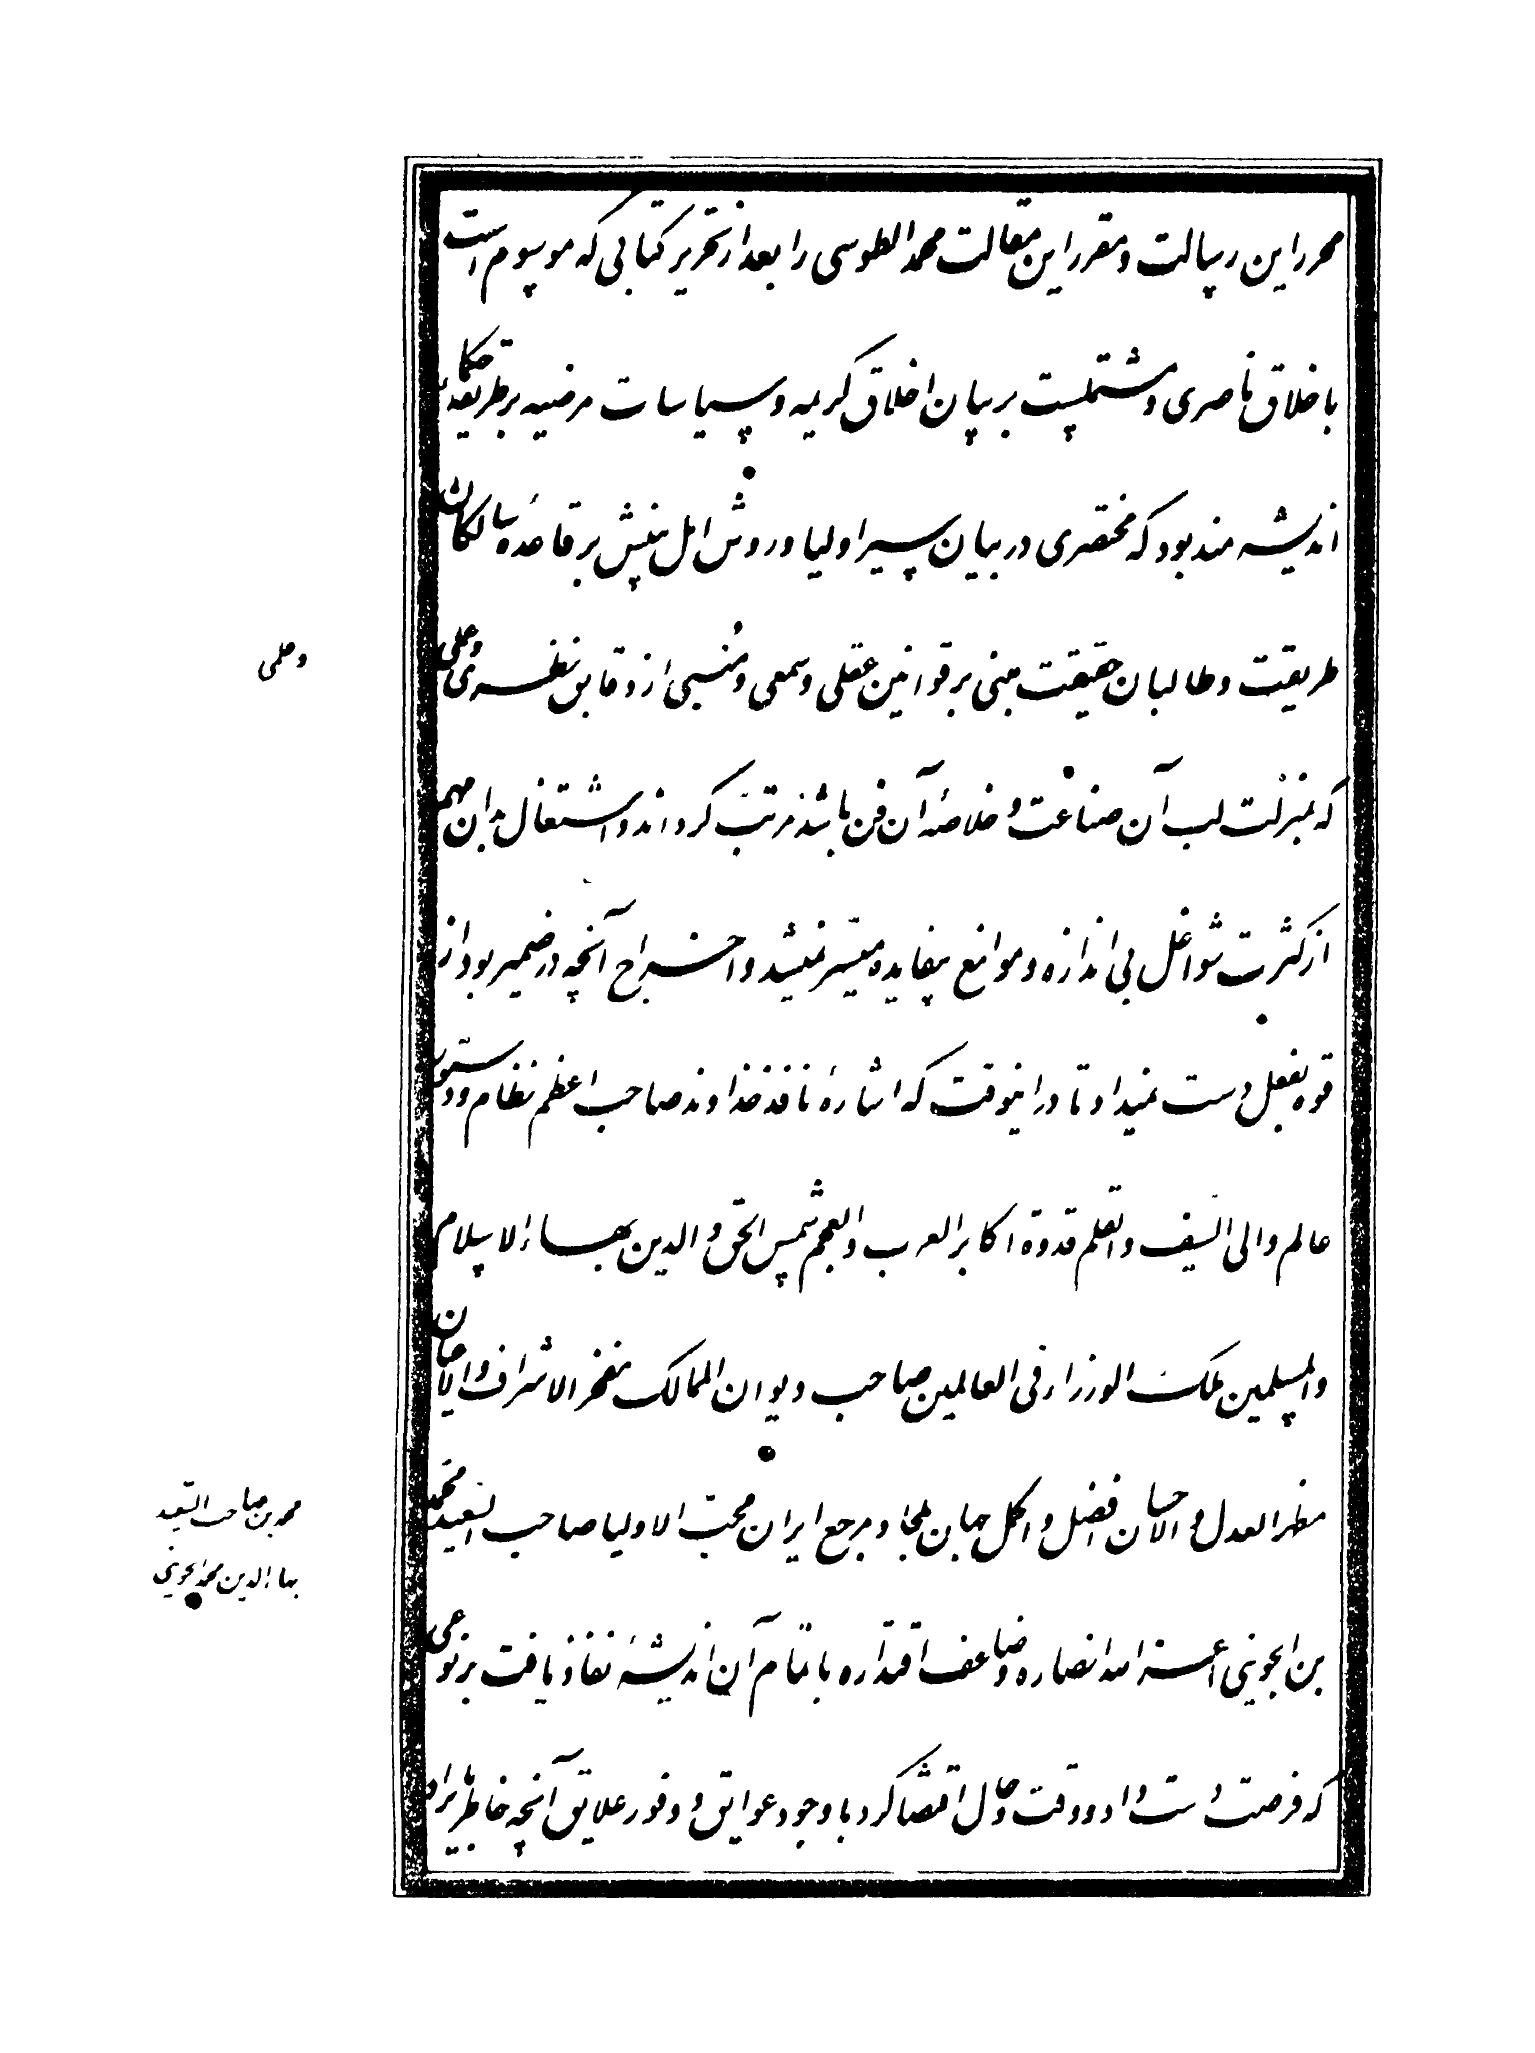 محرر این رسالت و مقرر این مقالت محمد الطوسی را بعد از تحریر کتابی که موسوم است
باخلاق ناصری و مشتملست بر بیان اخلاق کریمه و سیاسات مرضیه بر طریقهٔ حکما
اندیشه مند بود که مختصری در بیان سیر اولیا و روش اهل بینش بر قاعدهٔ سالکان
طریقت و طالبان حقیقت مبنی بر قوانین عقلی و سمعی و منبی از دقایق نظری و عملی
که بمنزلت لب آن صناعت و خلاصهٔ آن فن باشد مرتب کرداند و اشتغال بدان مهم
از کثرت شواغل بی اندازه و موانع بیفایده میسر نمیشد و اخراج آنچه در ضمیر بود از
قوه بفعل دست نمیداد تا در اینوقت که اشارهٔ نافذ خداوند صاحب اعظم نظام و دستور
عالم والی السیف و القلم قدوة اکابر العرب و العجم شمس الحق و الدین بهاء الاسلام
و المسلمین ملک الوزراء فی العالمین صاحب دیوان الممالک مفخر الاشراف و الاعیان
مظهر العدل و الاحسان افضل و اکمل جهان ملجا و مرجع ایران محب الاولیا صاحب السعید محمد
بن الجوینی اعز الله انصاره و ضاعف اقتداره باتمام آن اندیشهٔ نفاذ یافت بر نوعی
که فرصت دست داد و وقت و حال اقتضا کرد با وجود عوایق و وفور علایق آنچه خاطر برآن
و علمی
محمد بن صاحب السعید
بهاء الدین محمد الجوینی